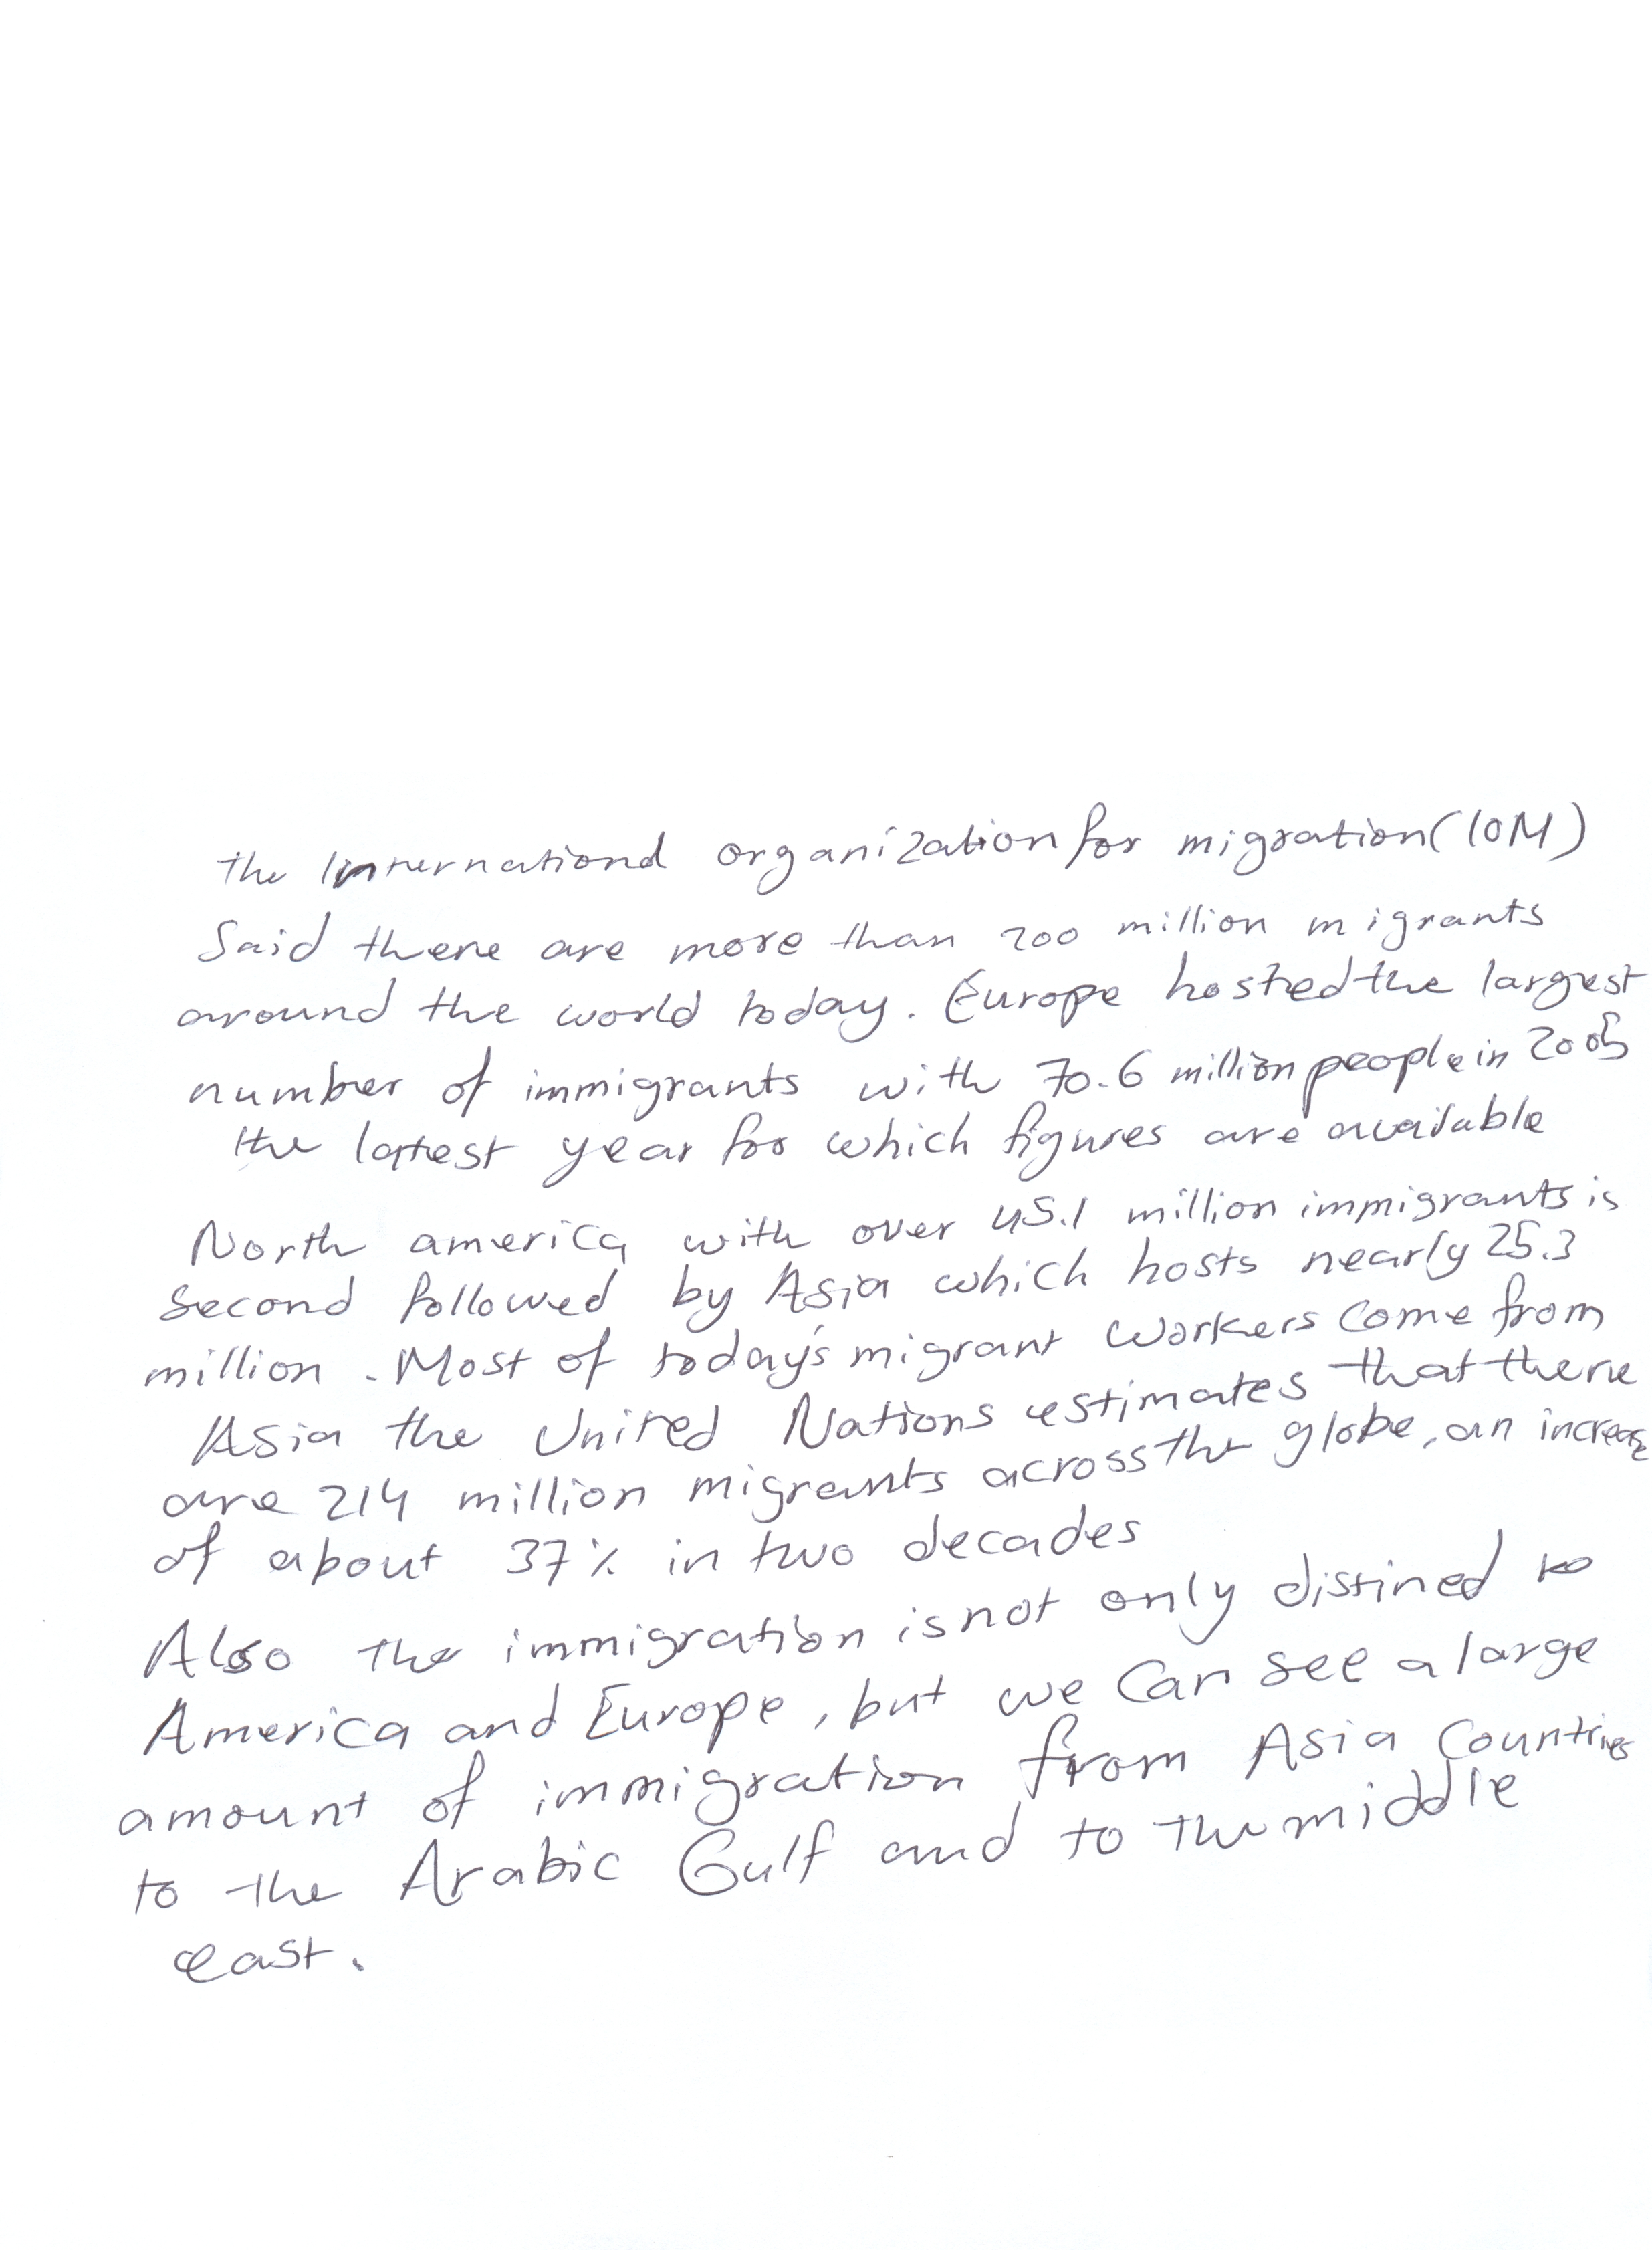 the International organization for migration (IOM)
Said there are more than 200 million migrants
around the world today. Europe hosted the largest
number of immigrants with 70.6 million people in 2005
the latest year for which figures are available
North america with over 45.1 million immigrants is
second followed by Asia which hosts nearly 25.3
million. Most of today's migrant workers come from
Asia the United Nations estimates that there
are 214 million migrants across the globe, an increase
of about 37% in two decades
Also the immigration is not only distined to
America and Europe, but we can see a large
amount of immigration from Asia countries
to the Arabic Gulf and to the middle
east.